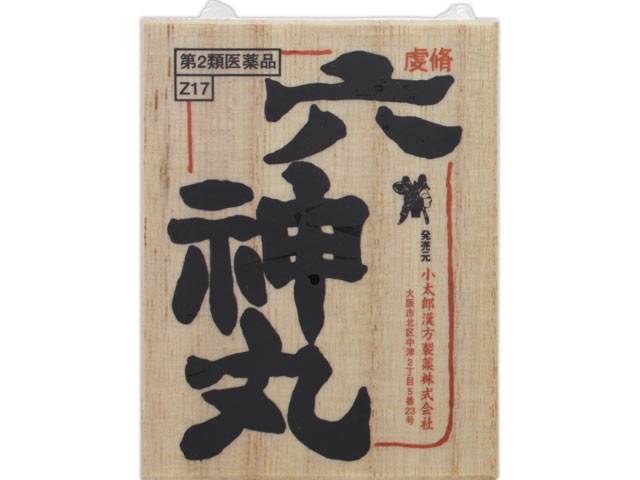 第2類医薬品
Z17
虔脩
六神丸
発売元
小太郎漢方製薬株式会社
大阪市北区中津2丁目5番23号